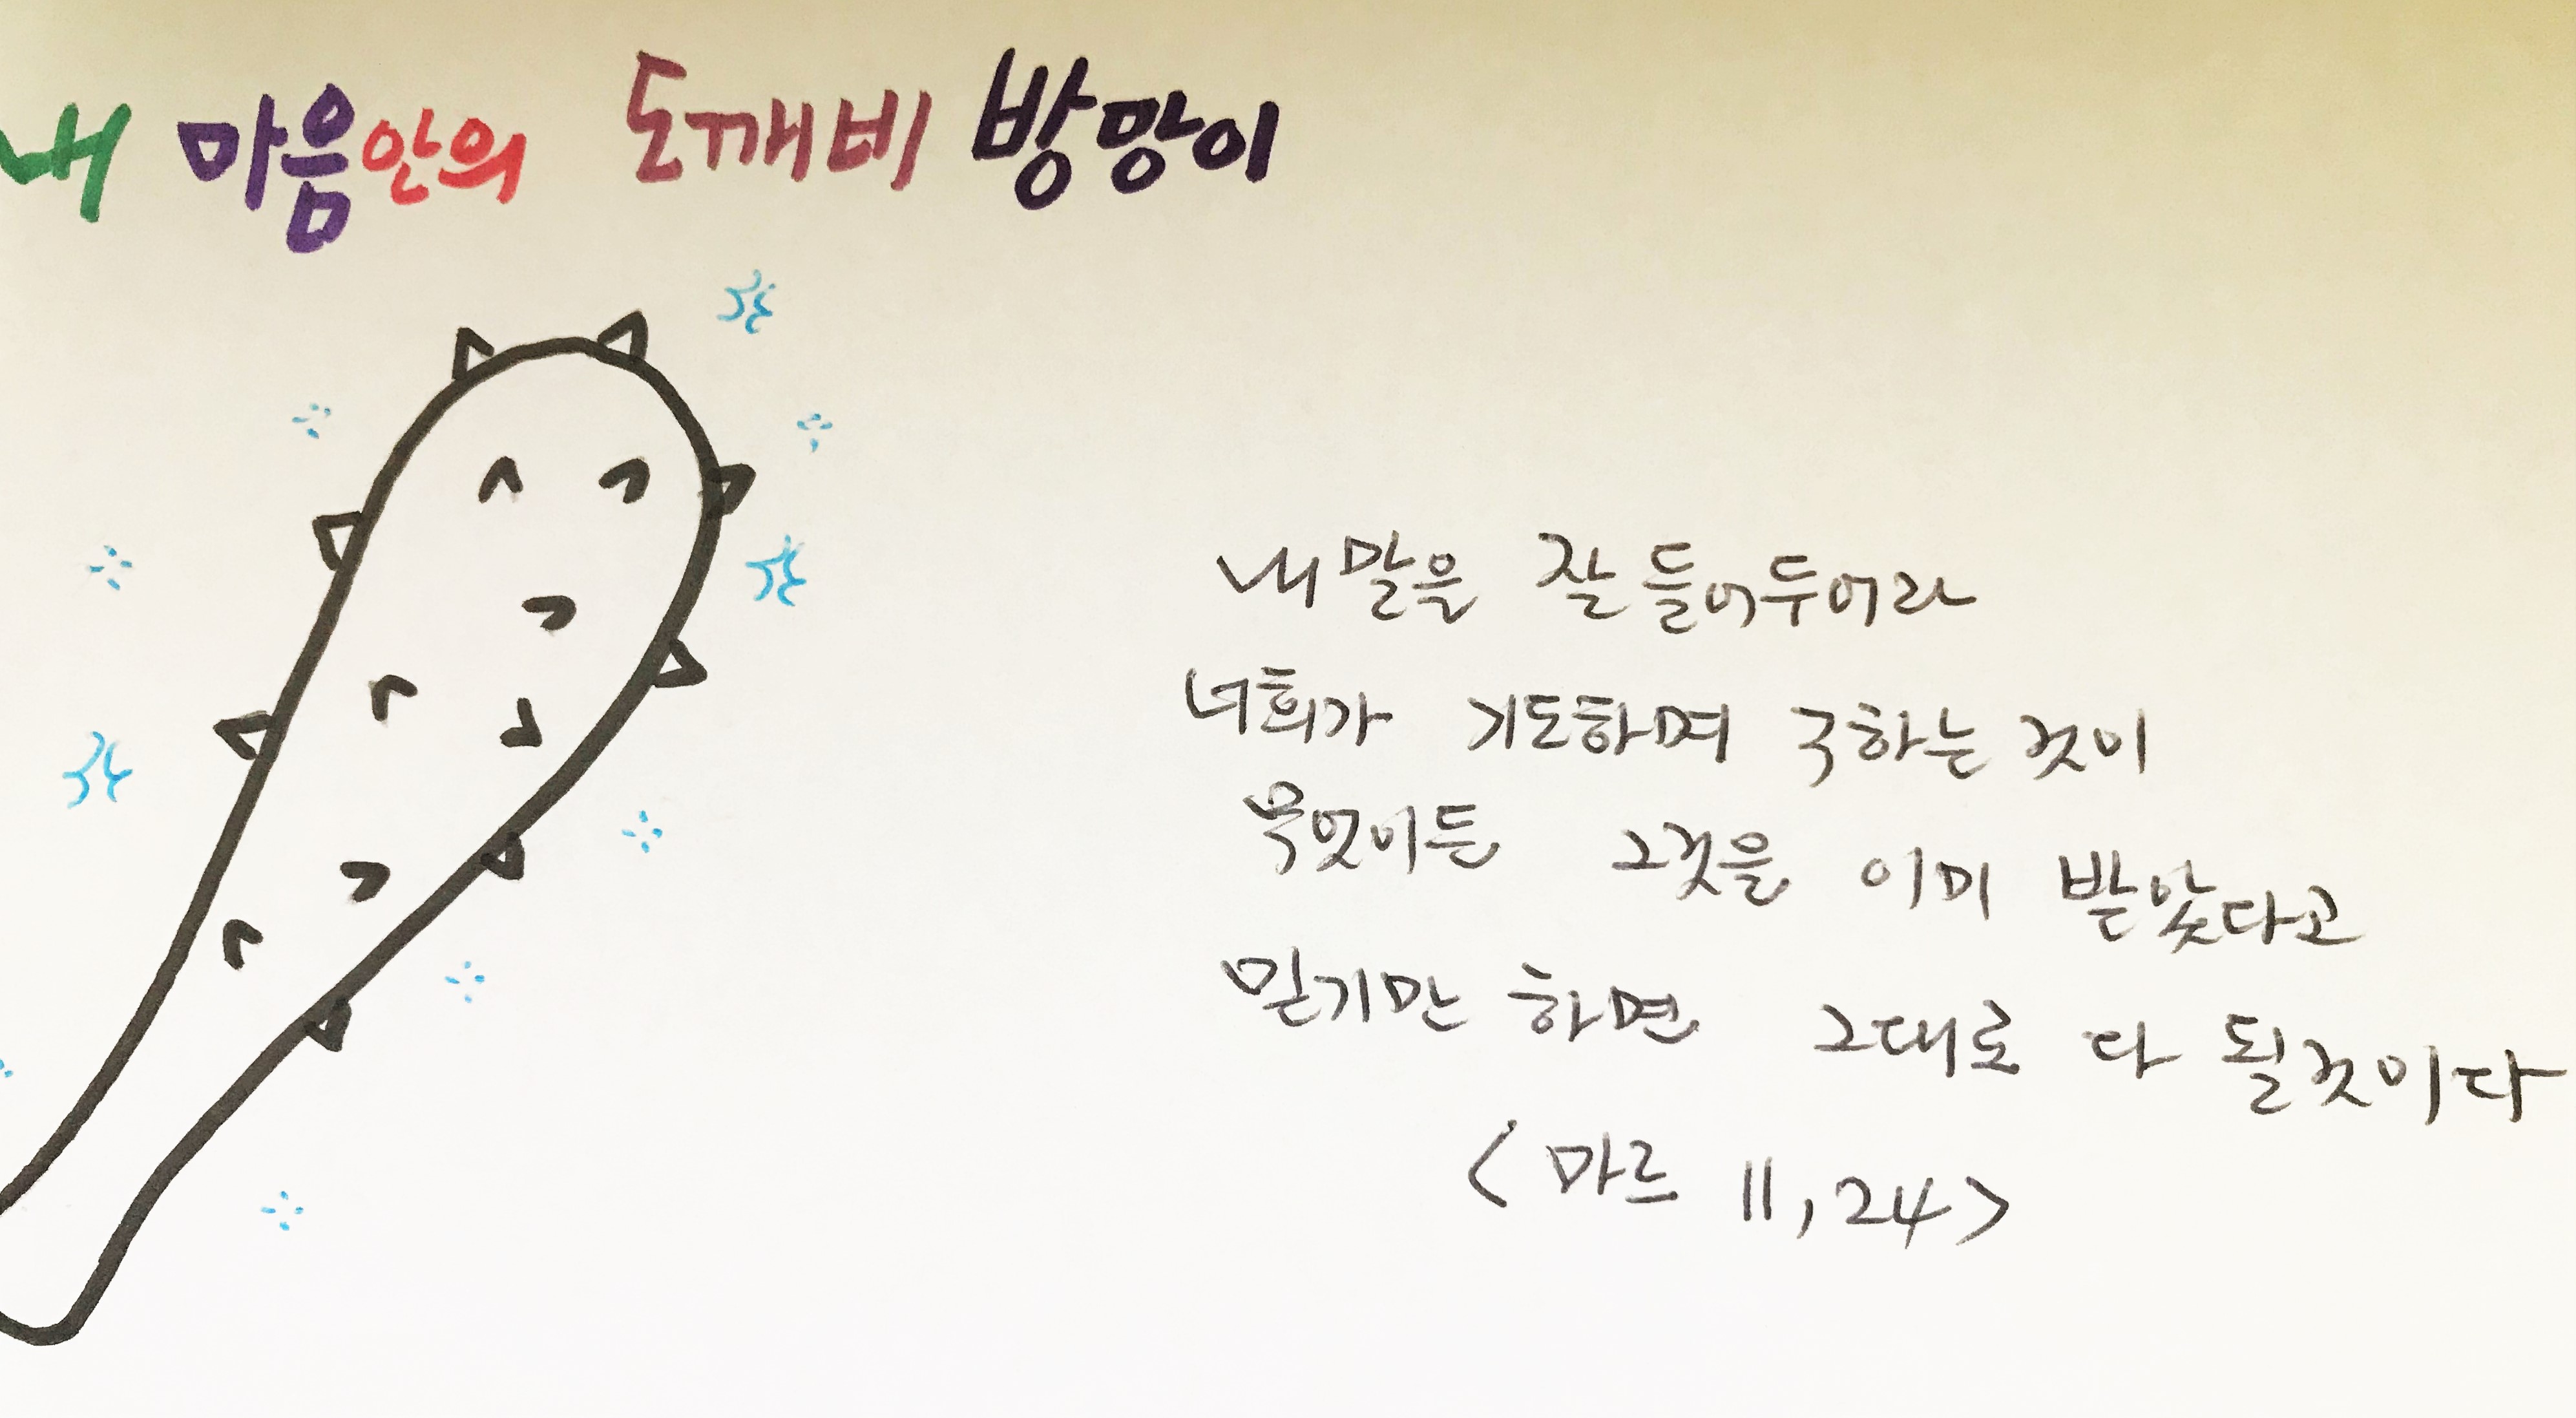 내 마음안의 도깨비 방망이
내 말을 잘 들어두어라
너희가 기도하며 구하는 것이
무엇이든 그것을 이미 받았다고
믿기만 하면 그대로 다 될것이다
<마르 11,24>